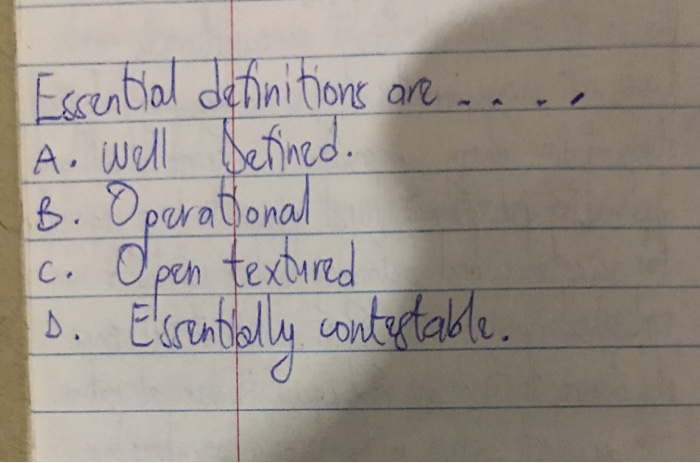 Essential definitions are - . . . .
A. Well Defined.
B. Operational
C. Open textured
D. Essentially contestable.